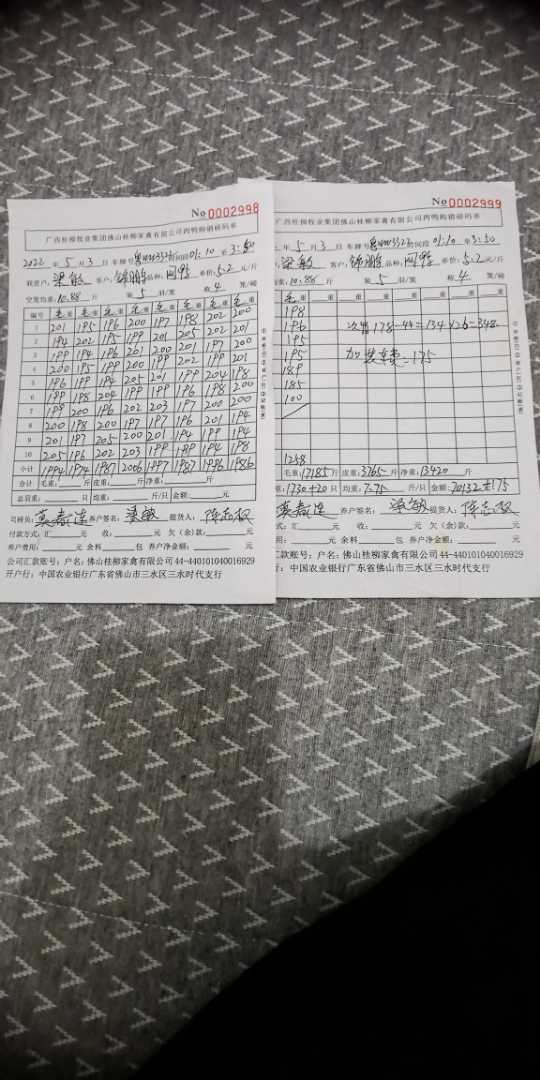 No 0002998
广西桂柳牧业集团佛山桂柳家禽有限公司肉鸭购销磅码单
2022 年 5 月 3 日 车牌号 时间段 01:10 至 3:50
养户: 梁敏 客户: 锦鹏 品种: 网鸭 单价: 5.2 元/斤
空笼均重: 10.88 斤 装 5 羽/笼 称 4 笼/磅
编号 毛 重 毛 重 毛 重 毛 重 毛 重 毛 重 毛 重 毛 重
1 201 195 196 200 197 198 202 200
2 194 202 195 199 201 205 202 201
3 199 194 196 201 200 201 197 200
4 200 195 199 200 199 202 199 201
5 196 199 194 205 201 199 204 198
6 199 198 204 199 199 196 198 200
7 199 200 196 202 203 197 200 200
8 200 198 200 197 197 196 201 194
9 201 197 205 200 201 194 199 194
10 205 196 202 203 199 199 194 198
小计 1994 1974 1987 2006 1997 1987 1996 1986
合计 毛重: 斤 皮重: 斤 净重: 斤
总羽重: 只 均重: 斤/只 金额: 元
司磅员: 养户签名: 梁敏 提货人: 陈志权
付款方式: 汇 元 收: 元 欠(余)款: 元
养户费用: 元 余料 包 养户净金额: 元
公司汇款账号: 户名: 佛山桂柳家禽有限公司 44-440101040016929
开户行: 中国农业银行广东省佛山市三水区三水时代支行
No 0002999
广西桂柳牧业集团佛山桂柳家禽有限公司肉鸭购销磅码单
年 5 月 3 日 车牌号 时间段 01:10 至 3:50
梁敏 客户: 锦鹏 品种: 网鸭 单价: 5.2 元/斤
均重: 10.88 斤 装 5 羽/笼 称 4 笼/磅
毛 重 重 重 重 重 重 重 重
198
196 次鸭 178-44=134×2.6=348
195
195 加装车费 175
189
185
100
1258
毛重: 17185 斤 皮重: 3765 斤 净重: 13420 斤
重: 1730+20 只 均重: 7.75 斤/只 金额: 70132+175
养户签名: 梁敏 提货人: 陈志权
式: 汇 元 收: 元 欠(余)款: 元
用: 元 余料 包 养户净金额: 元
汇款账号: 户名: 佛山桂柳家禽有限公司 44-440101040016929
行: 中国农业银行广东省佛山市三水区三水时代支行